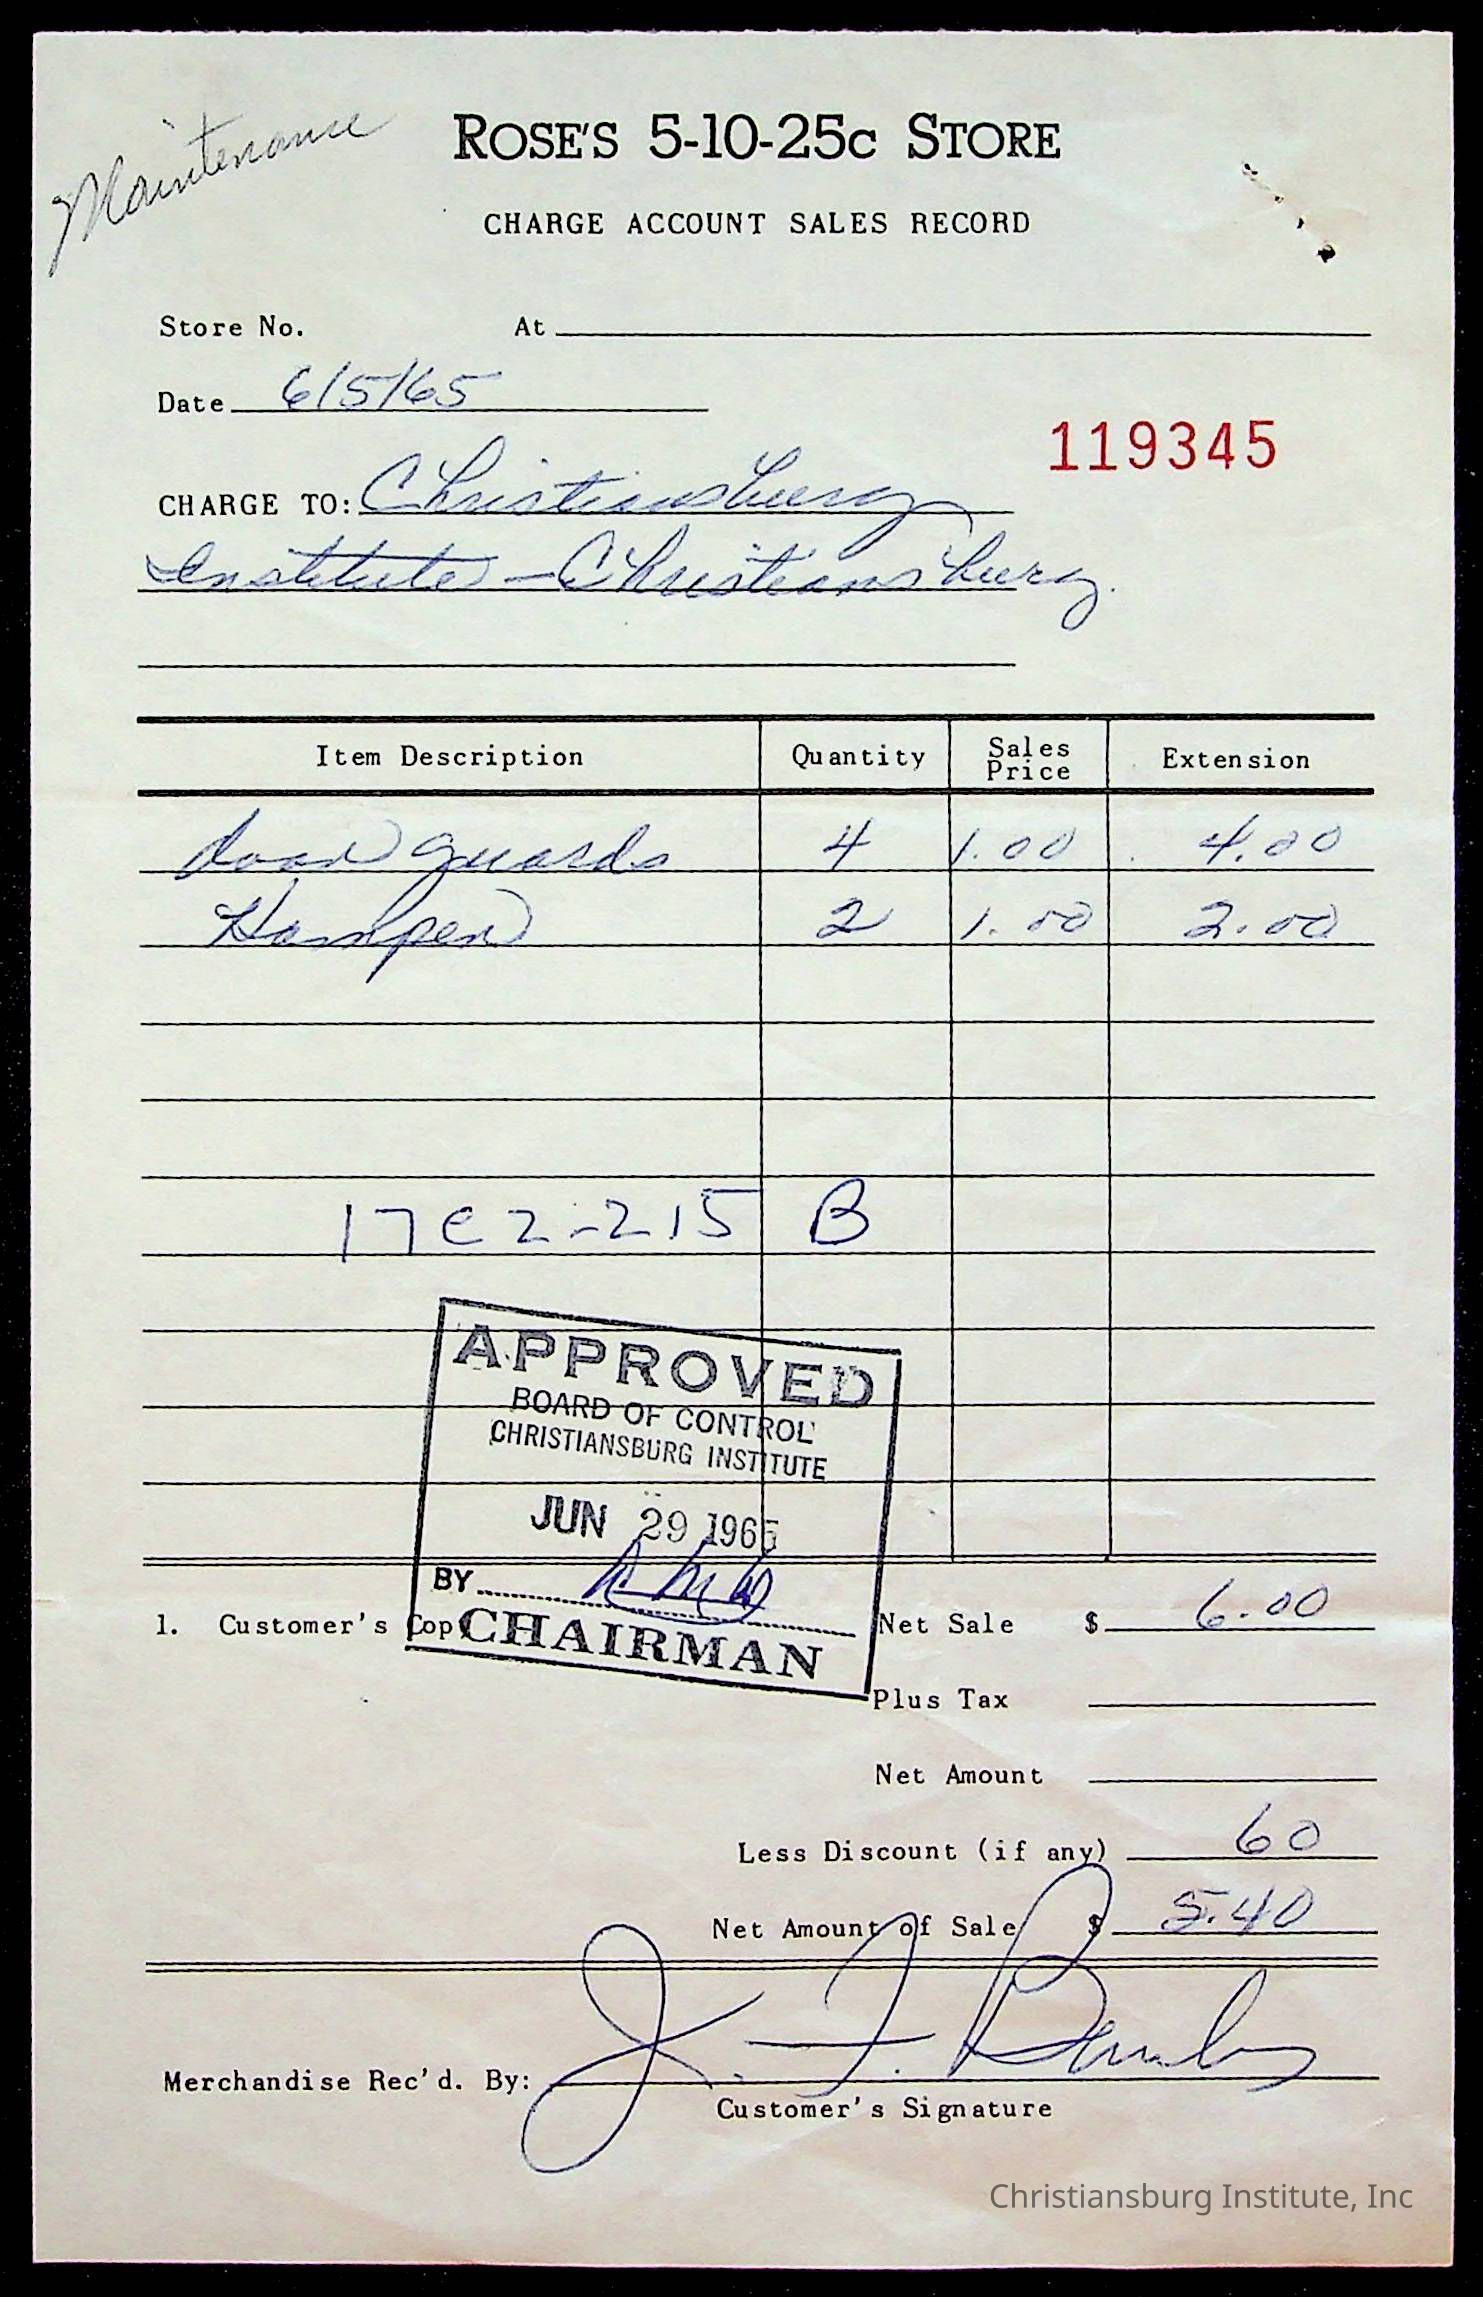 Maintenance
ROSE'S 5-10-25c STORE
CHARGE ACCOUNT SALES RECORD
Store No. At
Date 6/5/65
119345
CHARGE TO: Christiansburg
Institute - Christiansburg.
Item Description Quantity Sales Price Extension
door guards 4 1.00 4.00
Hamper 2 1.00 2.00
17c2-215 B
APPROVED
BOARD OF CONTROL
CHRISTIANSBURG INSTITUTE
JUN 29 1965
BY
CHAIRMAN
1. Customer's Copy
Net Sale $ 6.00
Plus Tax
Net Amount
Less Discount (if any) 60
Net Amount of Sale $ 5.40
Merchandise Rec'd. By: J. F.
Customer's Signature
Christiansburg Institute, Inc